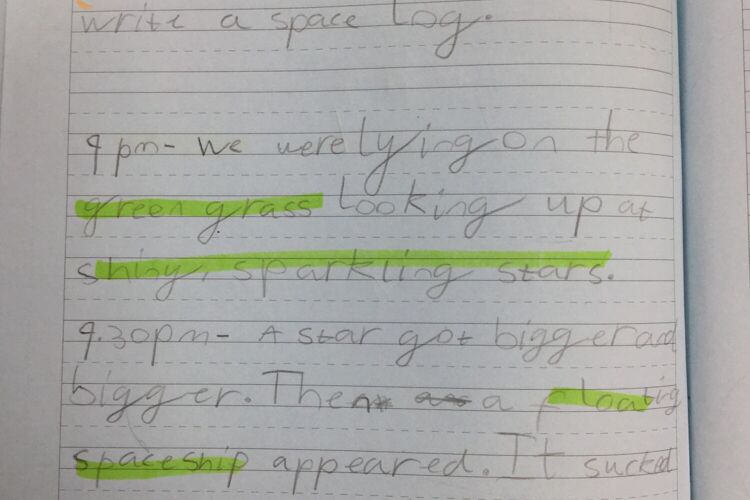 write a space log.
9pm- We were lying on the
green grass looking up at
shiny, sparkling stars.
9.30pm- A star got bigger and
bigger. Then a floating
spaceship appeared. It sucked